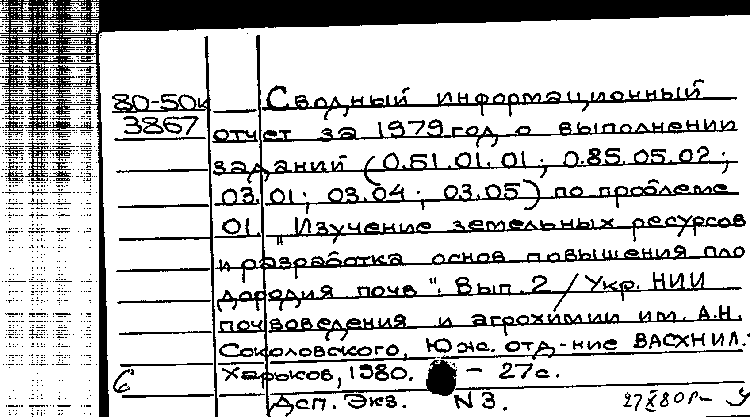 80-50к Сводный информационный
3867 отчет за 1979 год о выполнении
заданий (0.51.01.01; 0.85.05.02;
03.01; 03.04; 03.05) по проблеме
01. „Изучение земельных ресурсов
и разработка основ повышения пло
дородия почв". Вып. 2 / Укр. НИИ
почвоведения и агрохимии им. А.Н.
Соколовского, Юж. отд-ние ВАСХНИЛ.-
Харьков, 1980. - 27с.
Дсп. Экз. N3.